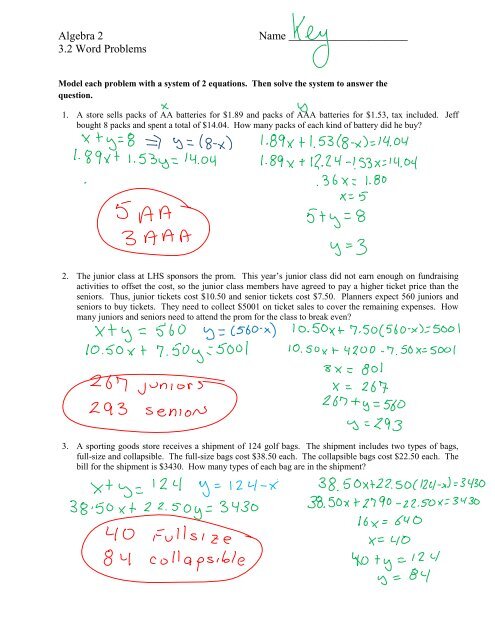 Algebra 2
Name Key
3.2 Word Problems
Model each problem with a system of 2 equations. Then solve the system to answer the
question.
x y
1. A store sells packs of AA batteries for $1.89 and packs of AAA batteries for $1.53, tax included. Jeff
bought 8 packs and spent a total of $14.04. How many packs of each kind of battery did he buy?
x+y=8 ⟹ y=(8-x)
1.89x+1.53y=14.04
1.89x+1.53(8-x)=14.04
1.89x+12.24-1.53x=14.04
.36x=1.80
x=5
5+y=8
y=3
5 AA
3 AAA
2. The junior class at LHS sponsors the prom. This year's junior class did not earn enough on fundraising
activities to offset the cost, so the junior class members have agreed to pay a higher ticket price than the
seniors. Thus, junior tickets cost $10.50 and senior tickets cost $7.50. Planners expect 560 juniors and
seniors to buy tickets. They need to collect $5001 on ticket sales to cover the remaining expenses. How
many juniors and seniors need to attend the prom for the class to break even?
x+y=560 y=(560-x)
10.50x+7.50y=5001
10.50x+7.50(560-x)=5001
10.50x+4200-7.50x=5001
8x=801
x=267
267+y=560
y=293
267 juniors
293 seniors
3. A sporting goods store receives a shipment of 124 golf bags. The shipment includes two types of bags,
full-size and collapsible. The full-size bags cost $38.50 each. The collapsible bags cost $22.50 each. The
bill for the shipment is $3430. How many types of each bag are in the shipment?
x+y=124 y=124-x
38.50x+22.50y=3430
38.50x+22.50(124-x)=3430
38.50x+2790-22.50x=3430
16x=640
x=40
40+y=124
y=84
40 Fullsize
84 collapsible